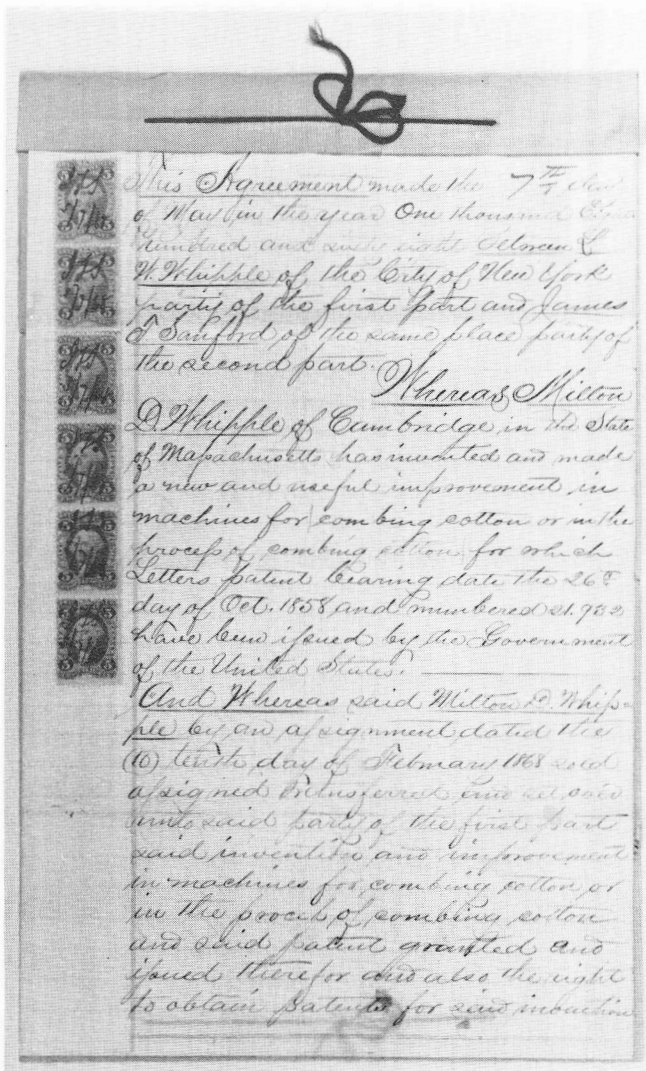 This Agreement made the 7th day
of May in the year One thousand Eight
hundred and sixty eight Between
W. Whipple of the City of New York
party of the first part and James
Sanford of the same place party of
the second part.
Whereas Milton
D. Whipple of Cambridge in the State
of Massachusetts has invented and made
a new and useful improvement in
machines for combing cotton or in the
process of combing cotton for which
Letters patent bearing date the 26th
day of Oct. 1858 and numbered 21.932
have been issued by the Government
of the United States.
And Whereas said Milton D. Whip-
ple by an assignment dated the
(10) tenth day of February 1868 sold
assigned transferred and set over
unto said party of the first part
said invention and improvement
in machines for combing cotton or
in the process of combing cotton
and said patent granted and
issued therefor and also the right
to obtain patents for said invention